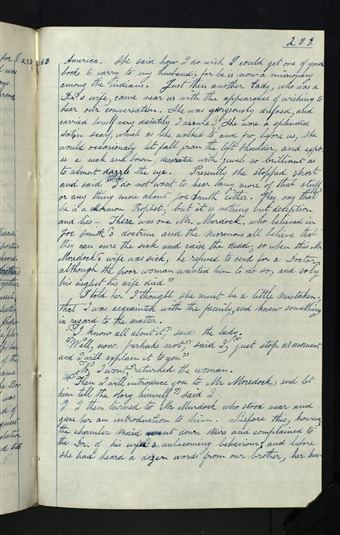 207
America. She said how I do wish I could get one of your
books to carry to my husband, for he is now a missionary
among the indians. Just then another Lady, who was a
Dr's wife, came near us with the appearance of wishing to
hear our conversation. She was gorgeously dressed, and
carried herself very daintily I assure. She wore a splendid
satin scarf, which as she walked to and fro, before us, she
would occasionally let fall from the left shoulder, and expo-
se a neck and bosom, decorated with jewels so brilliant as
to almost dazzle the eye. Presently she stopped short
and said I do not want to hear any more of that stuff
or any thing more about Joe Smith either. They say that
he is a Mormon Prophet, but it is nothing but deception
and lies. There was one Mr. Murdock, who believed in
Joe Smith's doctrine and the Mormons all believe that
they can cure the sick and raise the dead; so when this Mr
Moredock's wife was sick, he refused to send for a Doctor,
although the poor woman wanted him to do so, and so by
his neglect his wife died"
I told her I thought she must be a little mistaken,
that I was acquainted with the family, and knew something
in regard to the matter.
"I know all about it," said the lady.
"Well, now, perhaps not," said I, "just stop a moment
and I will explain it to you"
"No I wont" returned the woman.
"Then I will introduce you to Mr Moredock and let
him tell the story himself" said I
I then turned to Mr Murdock who stood near and
gave her an introduction to him. Before this, however
the chamber maid went down stairs and complained to
the Dr. of his wife's unbecoming behaviour, and before
she had heard a dozen words from our brother, her hus